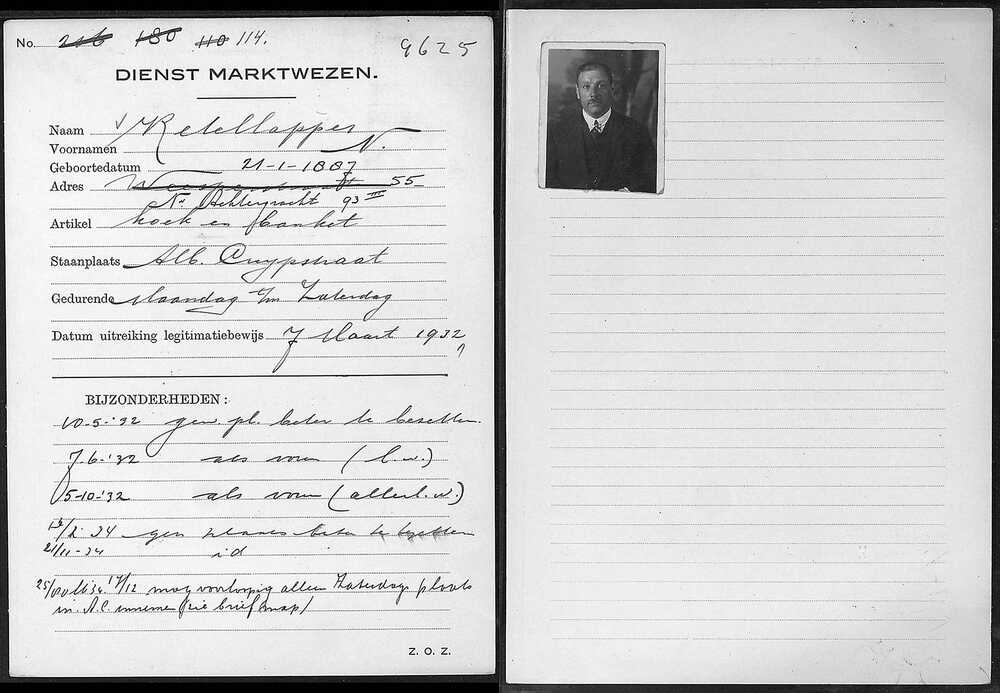 No. 216 180 110 114. 9625
DIENST MARKTWEZEN.
Naam Ketellapper
Voornamen N.
Geboortedatum 21-1-1887
Adres Weesperstraat 55
Nwe Achtergracht 93 III
Artikel koek en banket
Staanplaats Alb. Cuypstraat
Gedurende Maandag t/m Zaterdag
Datum uitreiking legitimatiebewijs 7 Maart 1932
BIJZONDERHEDEN:
10-5-'32 gew. pl. beter te bezetten.
7-6-'32 als voren (l.w.)
5-10-'32 als voren (allerl.w.)
/2-34 gew plaats beter te bezetten
21/11-34 id
25/ 17/12 mag voorloopig alleen Zaterdags plaats
in A.C. innemen (zie brief map)
Z. O. Z.